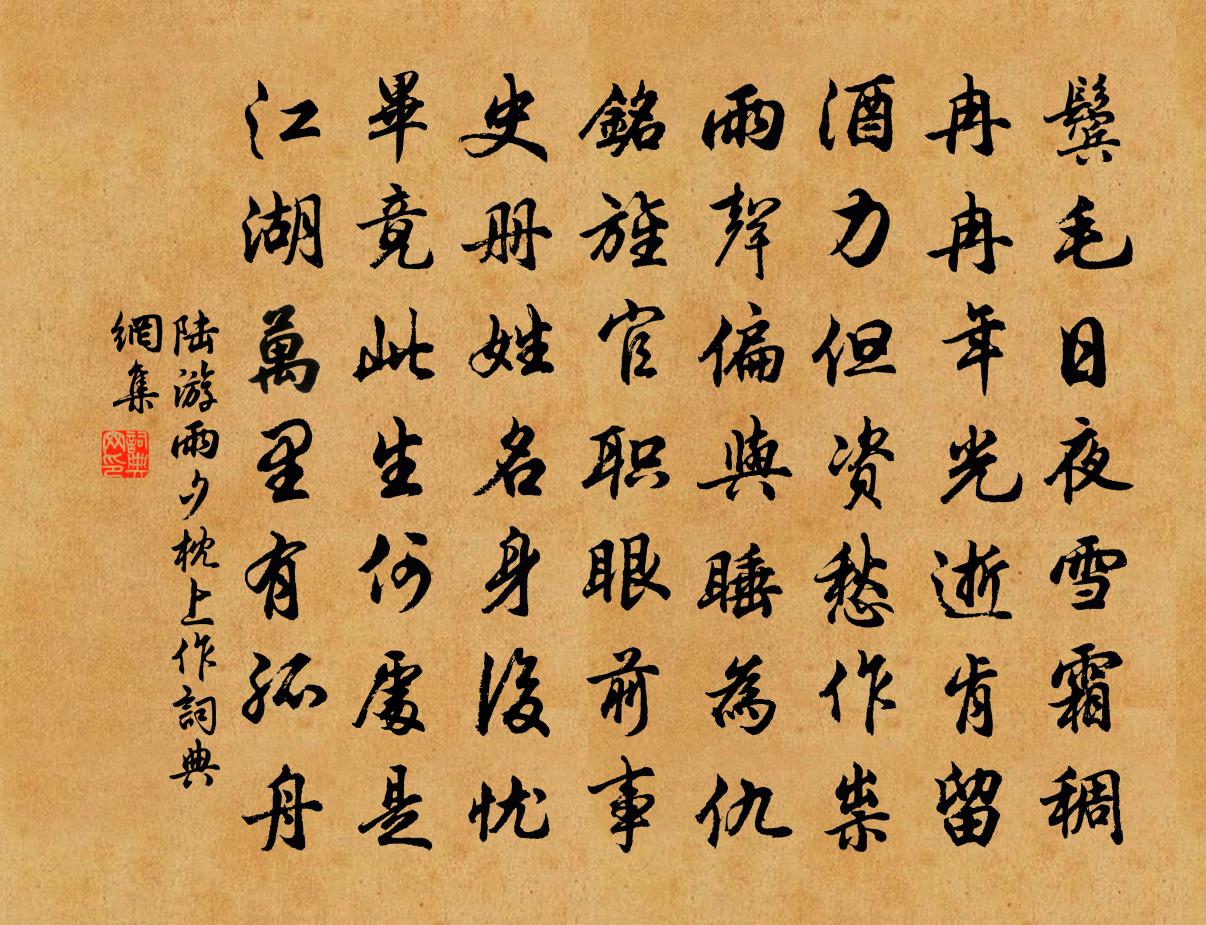 鬓毛日夜雪霜稠
冉冉年光逝肯留
酒力但资愁作祟
雨聲偏與睡為仇
銘旌官职眼前事
史册姓名身後忧
畢竟此生何處是
江湖萬里有孤舟
陆游雨夕枕上作詞典
網集
詞典网印